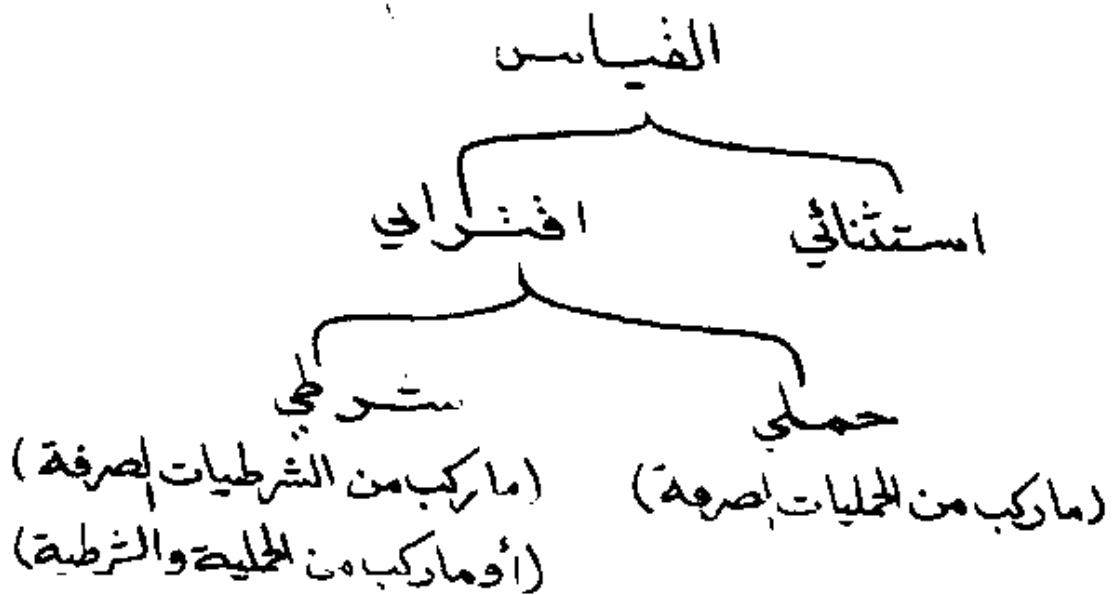 القياس
استثنائي
اقتراني
حملي
شرطي
(ماركب من الحمليات الصرفة)
(ماركب من الشرطيات الصرفة)
(أو ماركب من الحملية والشرطية)